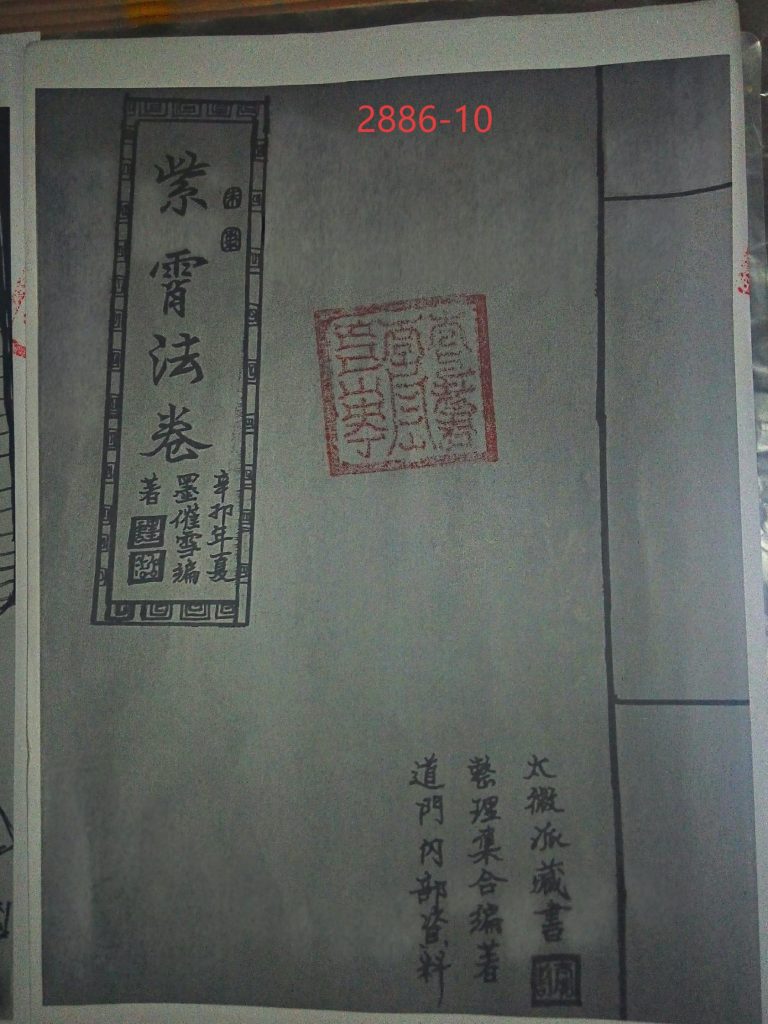 2886-10
紫霄法卷
辛卯年夏
墨催雪编
著
太微派藏書
整理集合编著
道門内部資料